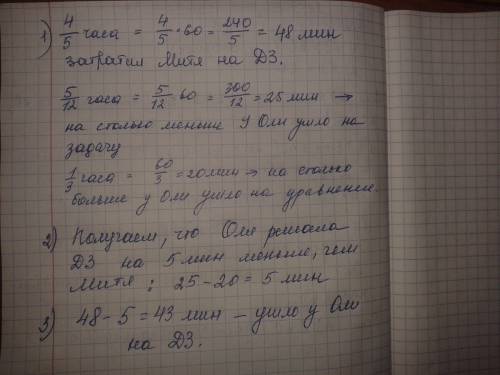 1) 4/5 часа = 4/5 · 60 = 240/5 = 48 мин
затратил Митя на ДЗ.
5/12 часа = 5/12 · 60 = 300/12 = 25 мин →
на столько меньше у Оли ушло на
задачу
1/3 часа = 60/3 = 20 мин → на столько
больше у Оли ушло на уравнение.
2) Получаем, что Оля решала
ДЗ на 5 мин меньше, чем
Митя: 25 - 20 = 5 мин
3) 48 - 5 = 43 мин - ушло у Оли
на ДЗ.